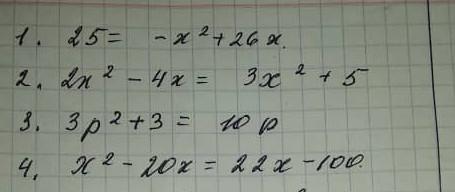 1. 25 = -x² + 26x.
2. 2x² - 4x = 3x² + 5
3. 3p² + 3 = 10p
4. x² - 20x = 22x - 100.